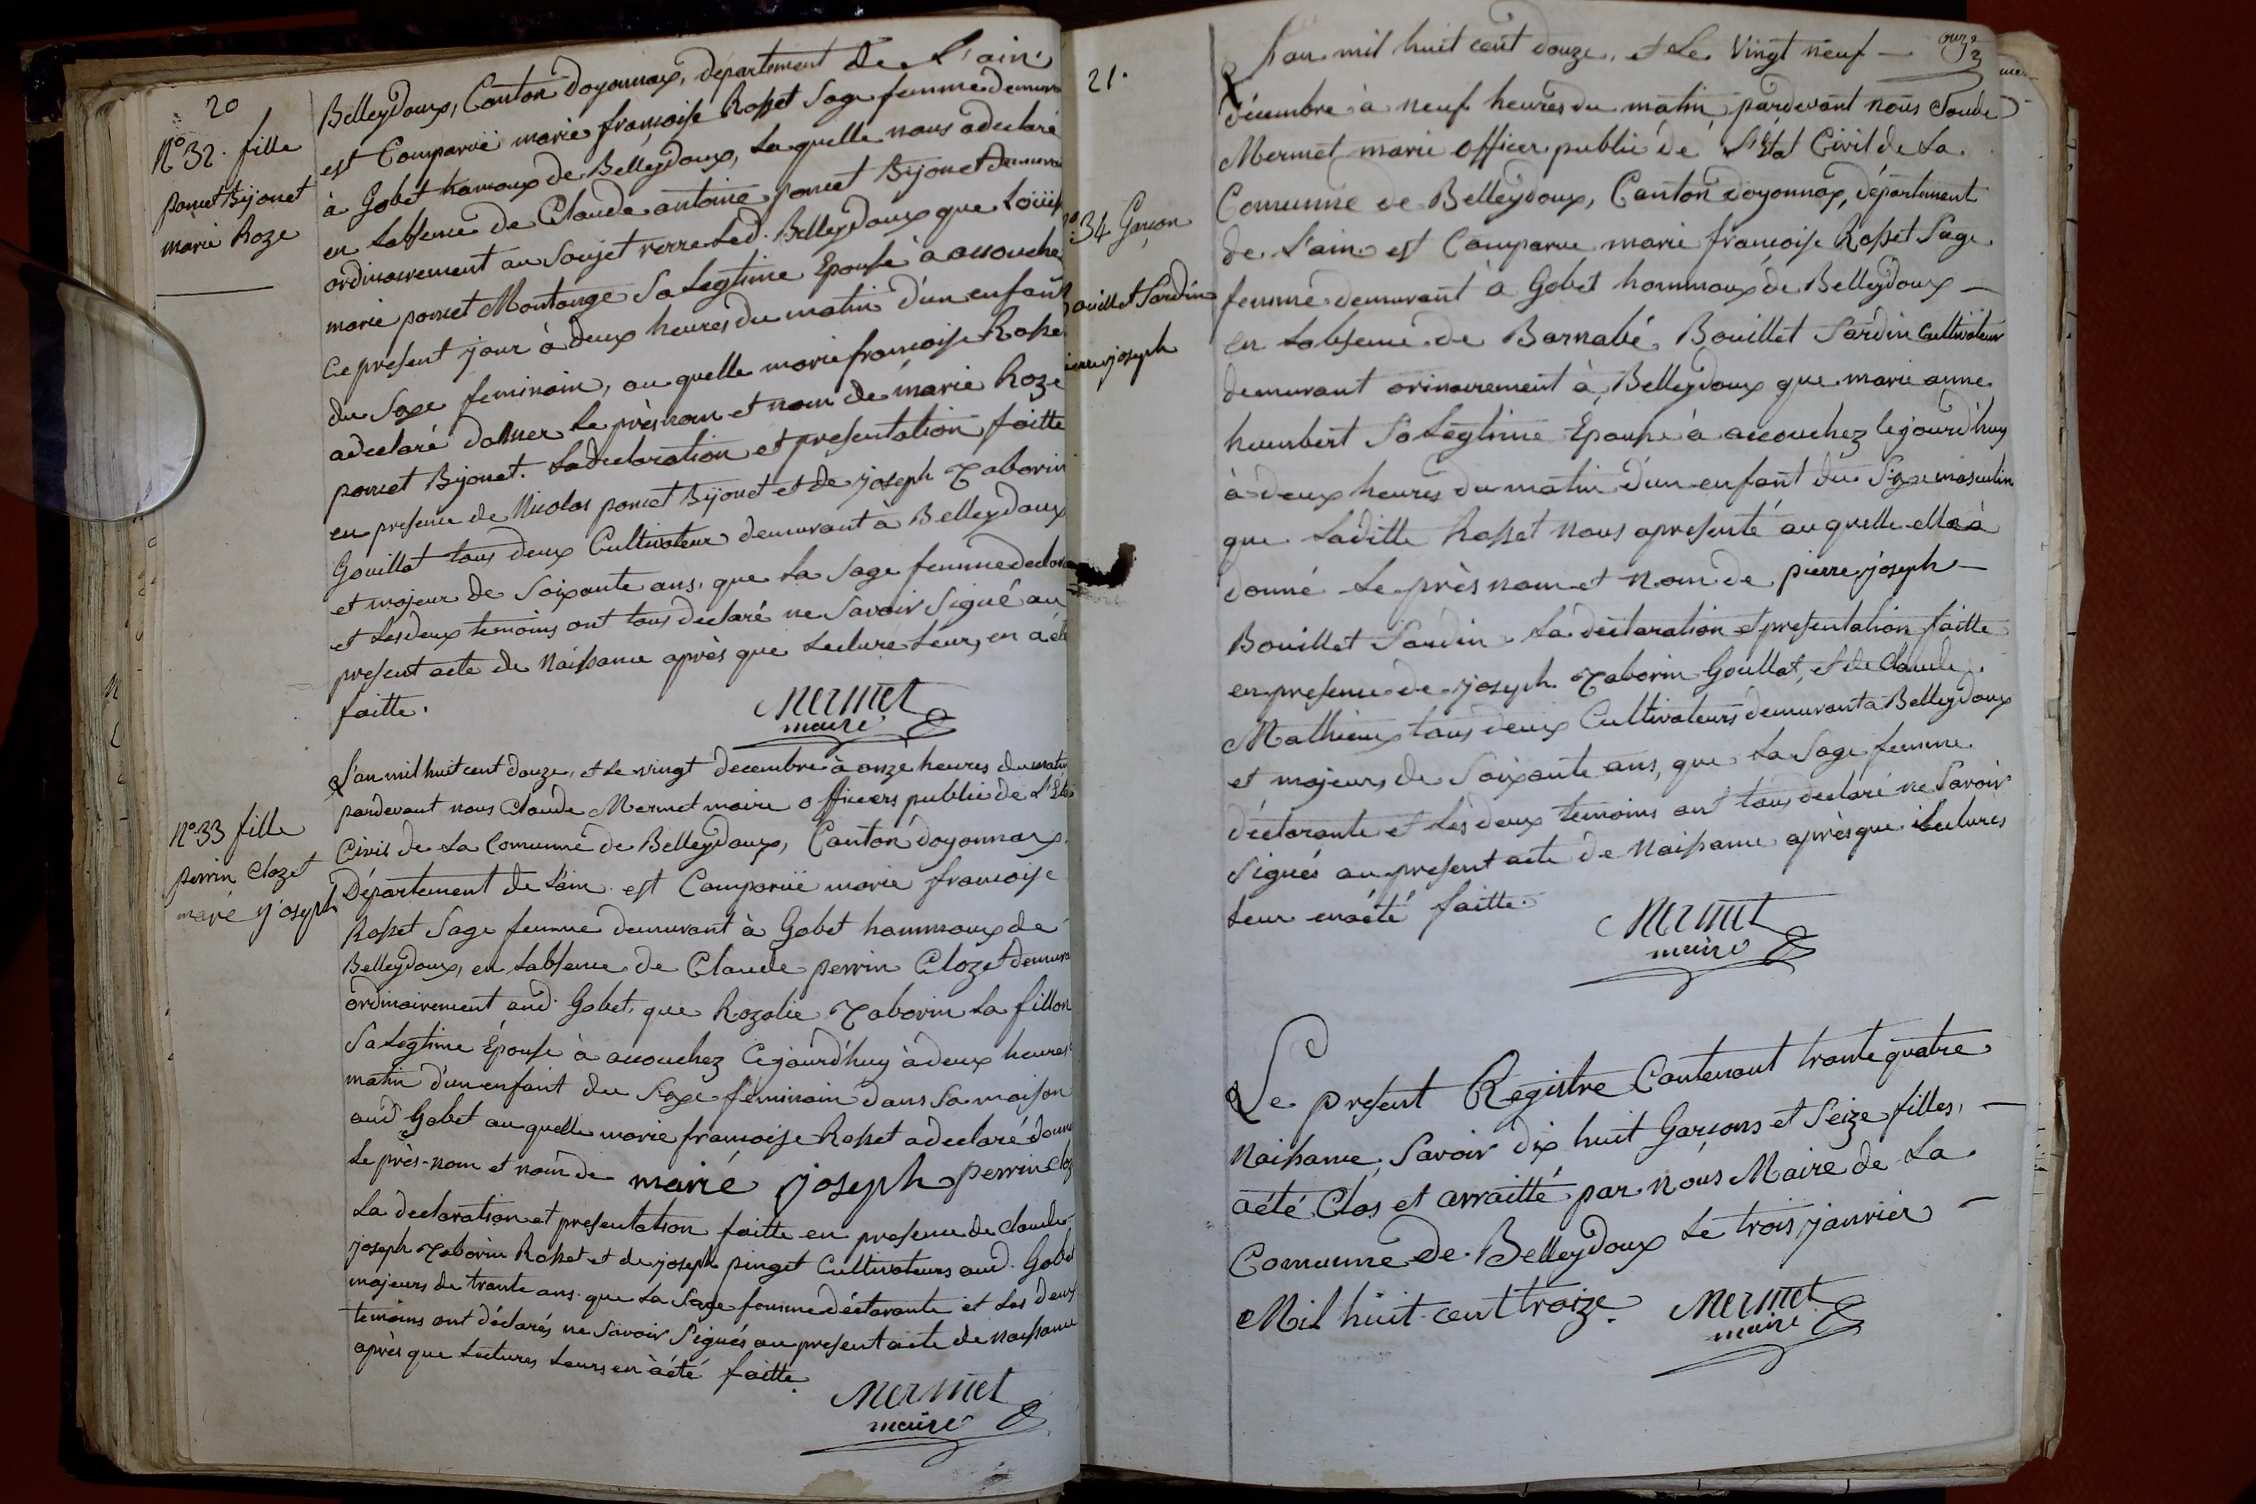 20
N° 32. fille
poncet Bijonet
marie Roze
Belleydoux, Canton doyonnax, département de L'ain.
est Comparüe marie françoise Rosset Sage femme demura
à Gobet hamaux de Belleydoux, Laquelle nous adeclaré
en Labsence de Claude antoine poncet Bijonet demura
ordinairement au Soujet verre Led. Belleydoux que Loüise
marie poncet Montange Sa Legtime Epouse à accouchez
Ce present jour à deux heures du matin d'un enfant
du Sexe feminain, au quelle marie françoise Rosset
adeclaré donner Le près nom et nom de marie Roze
poncet Bijonet. Ladeclaration et presentation faitte
en presence de Nicolas poncet Bijonet et de joseph Taborin
Gouillat tous deux Cultivateur demurant à Belleydoux
et majeur de Soixante ans, que La Sage femme declara
et Les deux temoins ont tous declaré ne Savoir Signé au
present acte de Naissance après que Lecture Leur, en a été
faitte.
Mermet
maire
N° 33 fille
perrin Clozet
marie joseph
L'an mil huit cent douze, et Le vingt decembre à onze heures du matin
pardevant nous Claude Mermet maire officiers publie de L'Etat
Civil de La Comunne de Belleydoux, Canton doyonnax,
Département de L'ain est Comparüe marie françoise
Rosset Sage femme demurant à Gobet hammaux de
Belleydoux, en Labsence de Claude perrin Clozet demura
ordinairement aud. Gobet, que Rozalie Taborin La fillon
Sa Legtime Épouse à accouchez Cejourd'huy à deux heures
matin d'un enfant du Sexe féminain dans Sa maison
aud Gobet au quelle marie françoise Rosset adeclaré donné
Le près-nom et nom de marie joseph perrin Cloz
La declaration et presentation faitte en presence de claude
joseph Taborin Rosset et de joseph pinget Cultivateurs aud. Gobet
majeurs de trante ans. que La Sage femme déclarante et Les deux
temoins ont déclarés ne Savoir Signés au present acte de naissance
après que Lectures Leurs en à été faitte.
Mermet
maire
21.
34 Garçon
Bouillet Sardin
pierre joseph
onze
L'an mil huit cent douze, et Le Vingt neuf
décembre à neuf heures du matin pardevant nous Claude
Mermet marie officer publie de L'Etat Civil de La
Comunne de Belleydoux, Canton doyonnax, département
de L'ain est Comparue marie francoise Rosset Sage
femme demurant à Gobet hommaux de Belleydoux
en Labsence de Barnabé Bouillet Sardin Cultivateur
demurant orinairement à Belleydoux que marie anne
humbert Sa Legtime Épouse à accouchez Cejourd'huy
à deux heures du matin d'un enfant du Sexe masculin
que Laditte Rosset nous apresenté au quelle elle à
donné Le près nom et nom de pierre joseph
Bouillet Sardin La declaration et presentation faitte
en presence de joseph Taborin Goullat, et de Claude
Mathieux tous deux Cultivateurs demurant à Belleydoux
et majeurs de Soixante ans, que La Sage femme
déclarante et Les deux temoins ont tous declaré ne Savoir
Signés au present acte de Naissance après que Lectures
Leur en à été faitte.
Mermet
maire
Le present Registre Contenant trante quatre
Naissance, Savoir dix huit Garçons et Seize filles,
aété Clos et arraitté par nous Maire de La
Comunne de Belleydoux Le trois janvier
Mil huit cent traize.
Mermet
maire